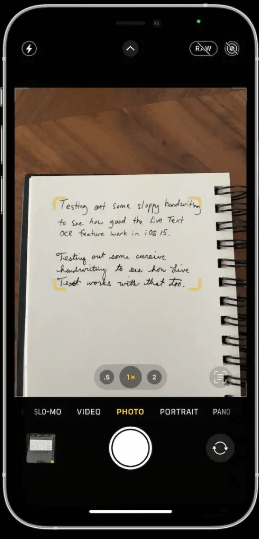 RAW
Testing out some sloppy handwriting
to see how good the Live Text
OCR feature work in iOS 15.
Testing out some cursive
handwriting to see how Live
Text works with that too.
.5 1× 2
SLO-MO VIDEO PHOTO PORTRAIT PANO